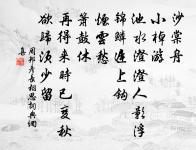 沙棠舟
小棹游
池水澄澄人影浮
锦鳞迟上钩
烟云愁
箫鼓休
再得来时已变秋
欲归须少留
周邦彦长相思词典网